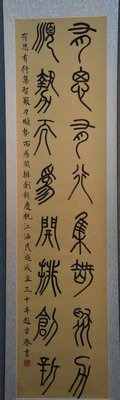 有思有行集智聚力
順勢而為開拓創新
有思有行集智聚力順勢而為開拓創新慶祝江油民進成立三十年趙春書